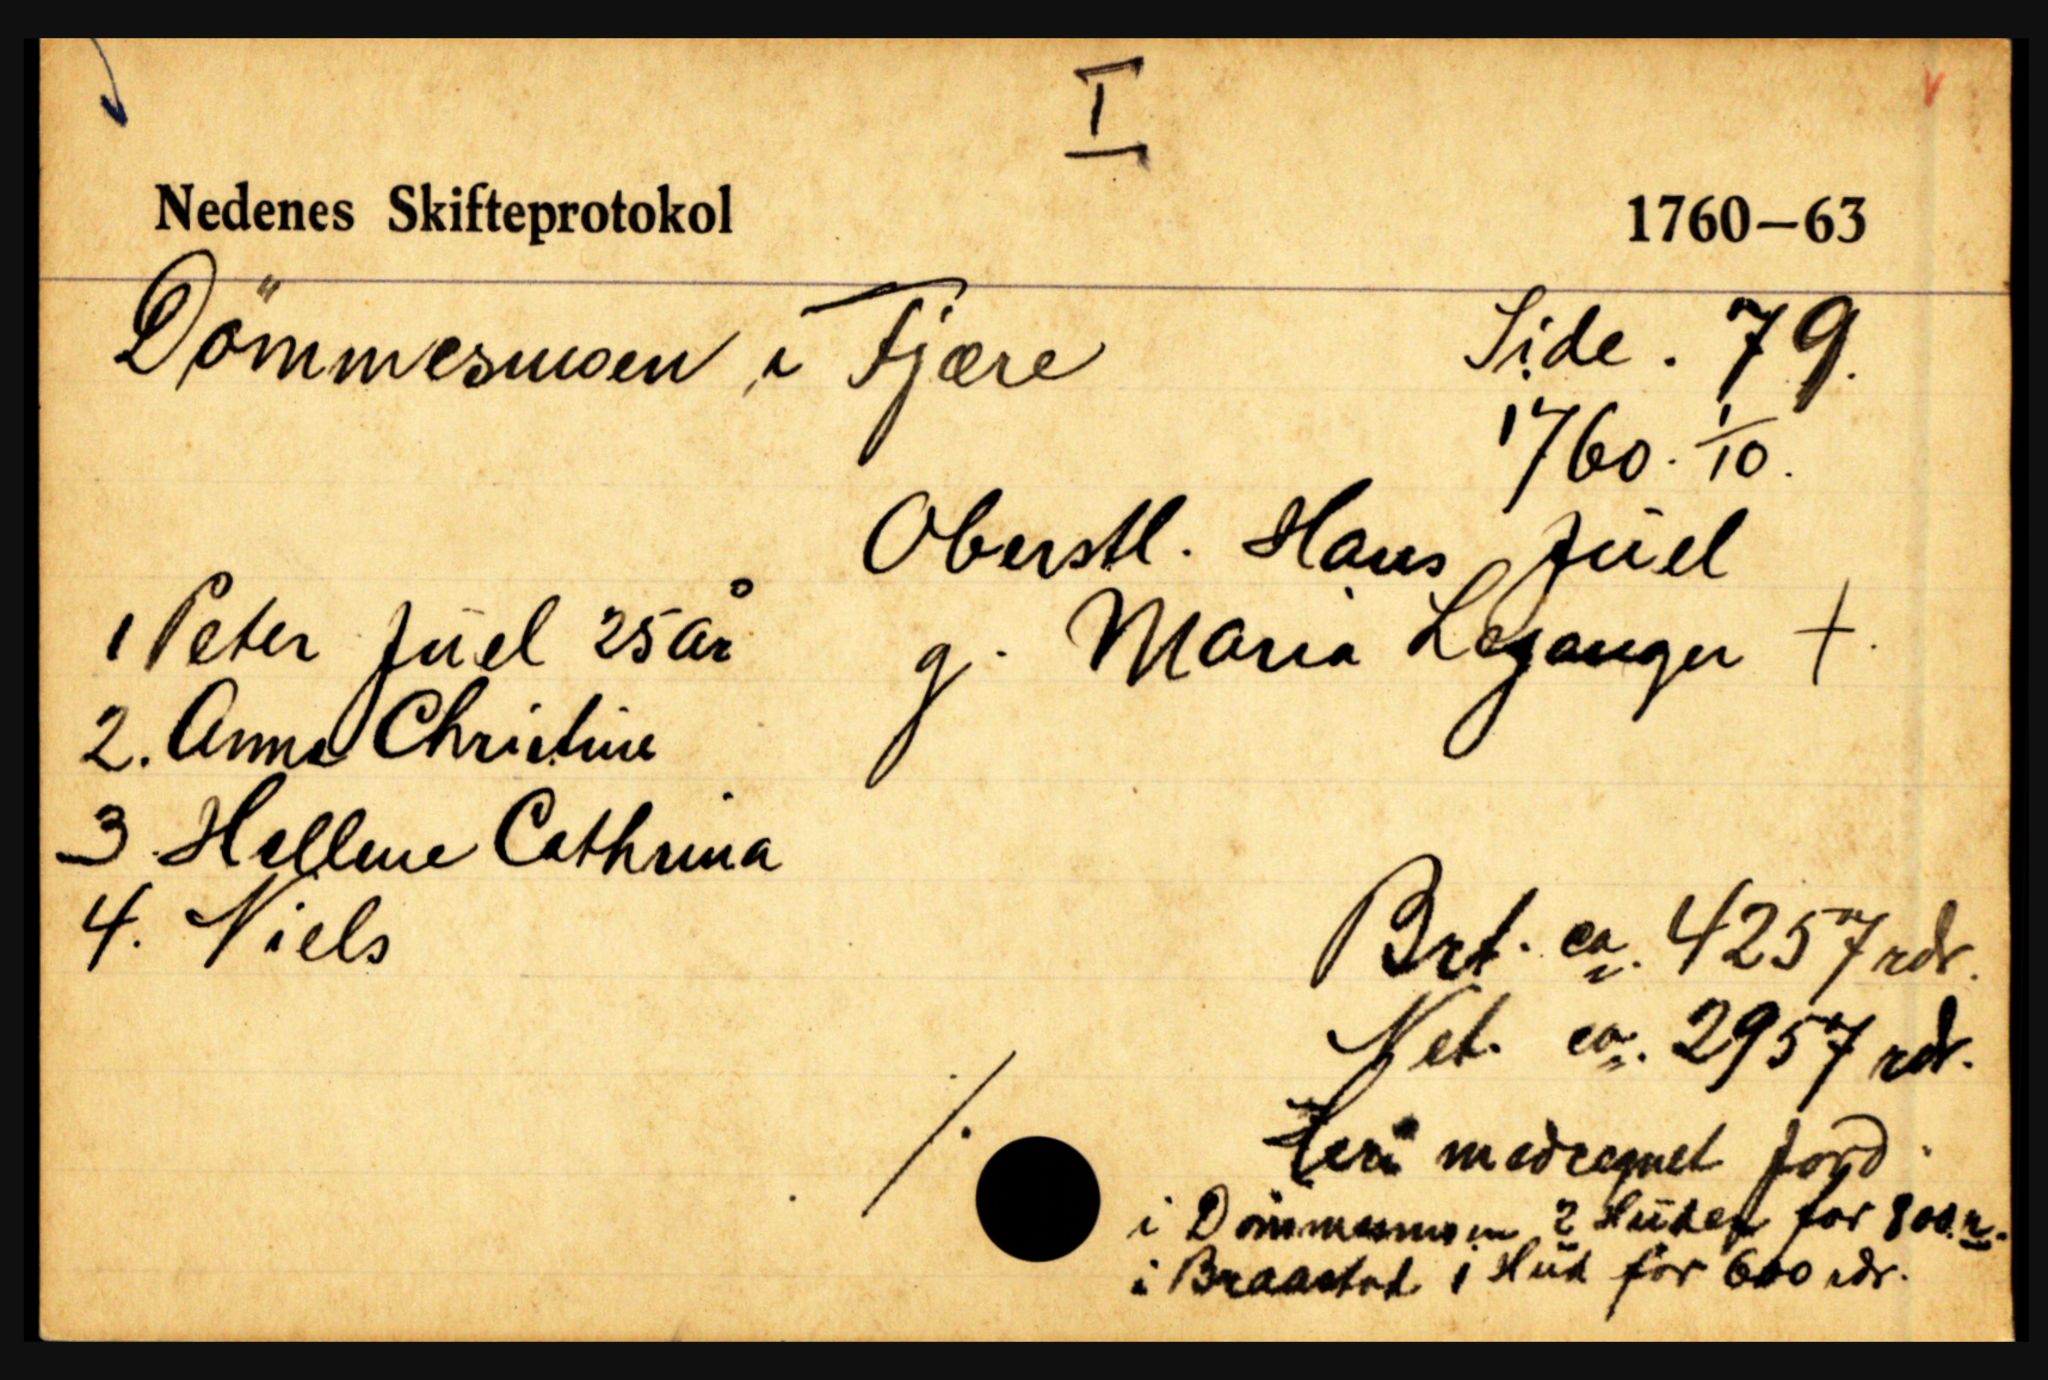 I
Nedenes Skifteprotokol 1760–63
Dömmesmoen i Fjære Side. 79.
1760. 1/10.
Oberstl. Hans Jūel
g. Maria Leganger +.
1 Peter Jūel 25 år
2. Anna Christine
3. Hellene Cathrina
4. Niels
Brt. ca. 4257 rdr.
Net. ca. 2957 rdr.
Heri medregnet Jord
i Dömmesmoen 2 Hūder for 800 r.
i Braastad 1 Hūd for 600 rdr.
./.